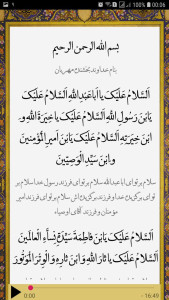 00:06
بسم الله الرحمن الرحیم
بنام خداوند بخشنده مهربان
اَلسَّلامُ عَلَيْكَ يا اَباعَبْدِاللهِ اَلسَّلامُ عَلَيْكَ
يَابْنَ رَسُولِ اللهِ اَلسَّلامُ عَلَيْكَ يا خِيَرَةَ اللهِ و
َابْنَ خِيَرَتِهِ اَلسَّلامُ عَلَيْكَ يَابْنَ اَميرِ الْمُؤْمِنينَ
وَابْنَ سَيِّدِ الْوَصِيّينَ
سلام بر تو ای ابا عبدالله سلام بر تو ای فرزند رسول خدا سلام بر
تو ای برگزیده خدا و فرزند برگزیده اش سلام بر تو ای فرزند امیر
مؤمنان و فرزند آقای اوصیاء
اَلسَّلامُ عَلَيْكَ يَابْنَ فاطِمَةَ سَيِّدَةِ نِساءِ الْعالَمينَ
اَلسَّلامُ عَلَيْكَ يا ثارَ اللهِ وَابْنَ ثارِهِ وَالْوِتْرَ الْمَوْتُورَ
0:00
-16:49